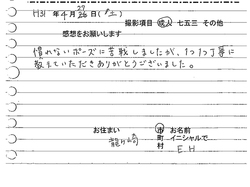 H31 年 4 月 27/28 日 (土)
撮影項目 成人 七五三 その他
感想をお願いします
慣れないポーズに苦戦しましたが、1つ1つ丁寧に
教えていただきありがとうございました。
お住まい 市 お名前
龍ヶ崎 町 イニシャルで…
村 E.H